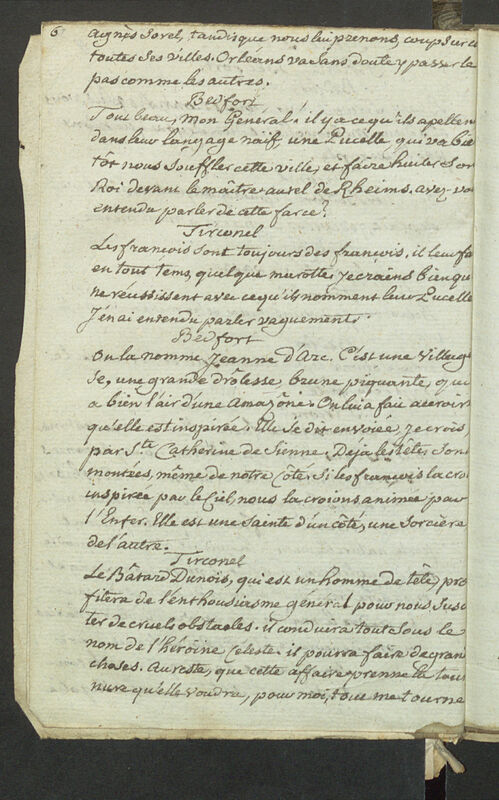 6
agnès Sorel, tandisque nous lui prenons, coup sur
toutes ses villes. Orléans va sans doute y passer
pas comme les autres.
Bedfort
Tout beau, mon Général: il y a ce qu'ils apellen
dans leur langage naif, une Pucelle, qui va bie
tot nous souffler cette ville, et faire huiler son
Roi devant le maître autel de Rheims. avez-vo
entendu parler de cette farce?
Tirconel
Les françois sont toujours des françois, il leur fa
en tout tems, quelque marotte. je crains bien qu
ne réussissent avec ce qu'ils nomment leur Pucelle
J'en ai entendu parler vaguement.
Bedfort
On la nomme Jeanne d'Arc. C'est une villageo
se, une grande drôlesse brune piquante, qui
a bien l'air d'une Amazône. On lui a fait accroire
qu'elle est inspirée. Elle se dit envoiée, je crois,
par Ste Catherine de Sienne. Déja les têtes sont
montées, même de notre côté. Si les françois la cro
inspirée par le Ciel, nous la croions animée par
l'Enfer. Elle est une Sainte d'un côté, une Sorcière
de l'autre.
Tirconel
Le Bâtard Dunois, qui est un homme de tête, pro
fitera de l'enthousiasme général pour nous susci
ter de cruels obstacles. il conduira tout sous le
nom de l'héroïne Céleste. il pourra faire de gran
choses. Aureste, que cette affaire prenne la tour
nure qu'elle voudra, pour moi, tout me tourne